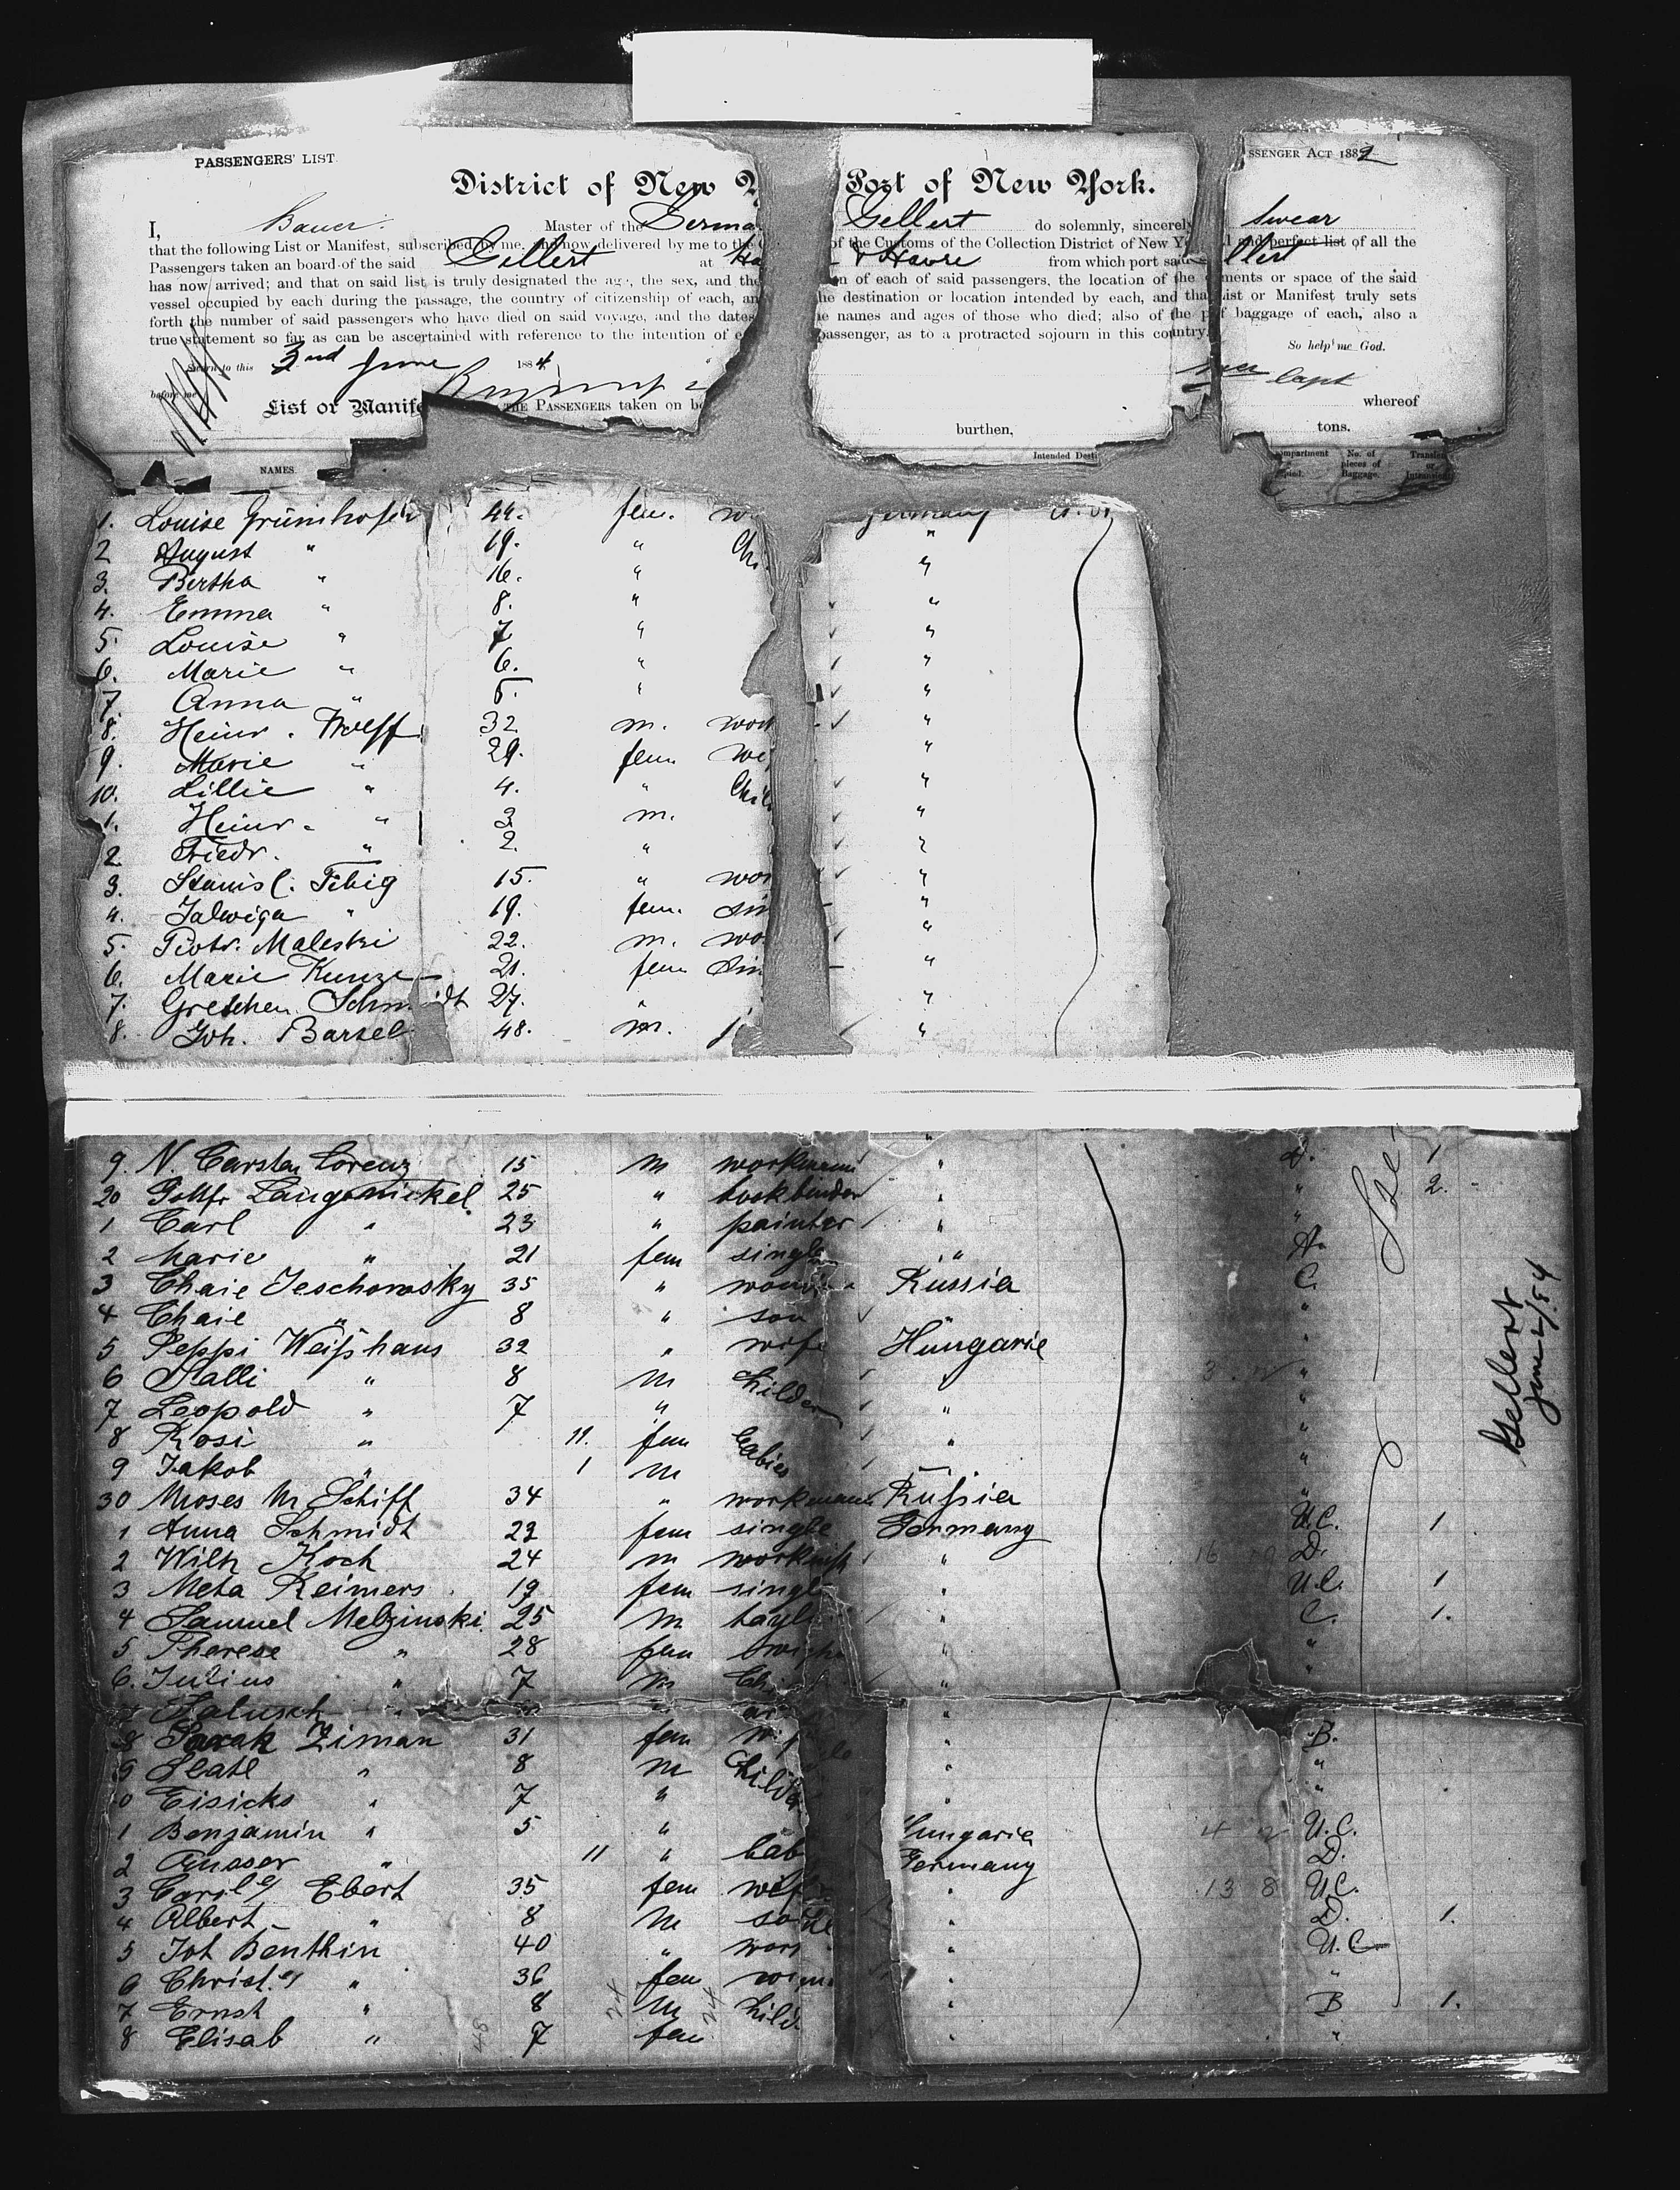 PASSENGERS' LIST.
SSENGER ACT 1882
District of New Y Port of New York.
I, Bauer Master of the Germa Gellert do solemnly, sincerely swear
that the following List or Manifest, subscribed by me, and now delivered by me to the of the Customs of the Collection District of New Y and perfect list of all the
Passengers taken an board of the said Gellert at Ha & Havre from which port said llert
has now arrived; and that on said list is truly designated the age, the sex, and the n of each of said passengers, the location of the ments or space of the said
vessel occupied by each during the passage, the country of citizenship of each, an he destination or location intended by each, and tha List or Manifest truly sets
forth the number of said passengers who have died on said voyage, and the dates e names and ages of those who died; also of the p f baggage of each, also a
true statement so far as can be ascertained with reference to the intention of e passenger, as to a protracted sojourn in this country.
So help me God.
Sworn to this 2nd June 1884
before me
capt
List or Manife THE PASSENGERS taken on bo whereof
burthen, tons.
NAMES. Intended Desti mpartment No. of pieces of Baggage. Transien or
1. Louise Grünihofer 44. fem. w. Germany
2 August " 19. " Ch. "
3. Bertha " 16. " "
4. Emma " 8. " "
5. Louise " 7 " "
6. Marie " 6. " "
7. Anna " 5. " "
8. Heinr. Wolff 32 m. work "
9. Marie " 29. fem wi "
10. Lillie " 4. " Chil "
1. Heinr. " 3 m. "
2 Friedr. " 2. " "
3. Stanisl. Fibig 15. " wor "
4. Jalwiga " 19. fem. sin "
5. Piotr. Maleski 22. m. wo "
6. Marie Kunze 21. fem sin "
7. Gretchen Schmidt 27. " "
8. Joh. Barzel 48. m. "
9 N. Carsten Lorenz 15 m workmann " D. 1
20 Gottfr Langenickel 25 " bookbinder " " 2.
1 Carl " 23 " painter " "
2 Marie " 21 fem single " A.
3 Chaie Jeschorowsky 35 " Russia C.
4 Chaie " 8 " son "
5 Peppi Weißhaus 32 " wife Hungarie "
6 Salli " 8 m childern " "
7 Leopold " 7 " " "
8 Rosi " 11. fem babies " "
9 Jakob " 1 m "
30 Moses M Schiff 34 " workmann Rußia "
1 Anna Schmidt 22 fem single Germany U.C. 1
2 Wilh Koch 24 m " D.
3 Meta Reimers 19 fem single " U.C. 1
4 Samuel Melzinski 25 m tayl " C. 1.
5 Therese " 28 fem " "
6. Julius " 7 m Ch " "
Salusch " " "
8 Sarah Ziman 31 fem w " B.
9 Slatl " 8 m childe " "
0 Eisicks " 7 " " "
1 Benjamin " 5 " Hungarie 4 2 U.C.
2 Anasser " 11 " bab Germany D.
3 Carile Ebert 35 fem wife " 13 8 U.C.
4 Albert " 8 m so " D. 1.
5 Joh Benthin 40 " work " U.C
6 Christ. " 36 fem " "
7 Ernst " 8 m child " B 1.
8 Elisab " 7 fem " "
48 24 24
Gellert
June 2/84